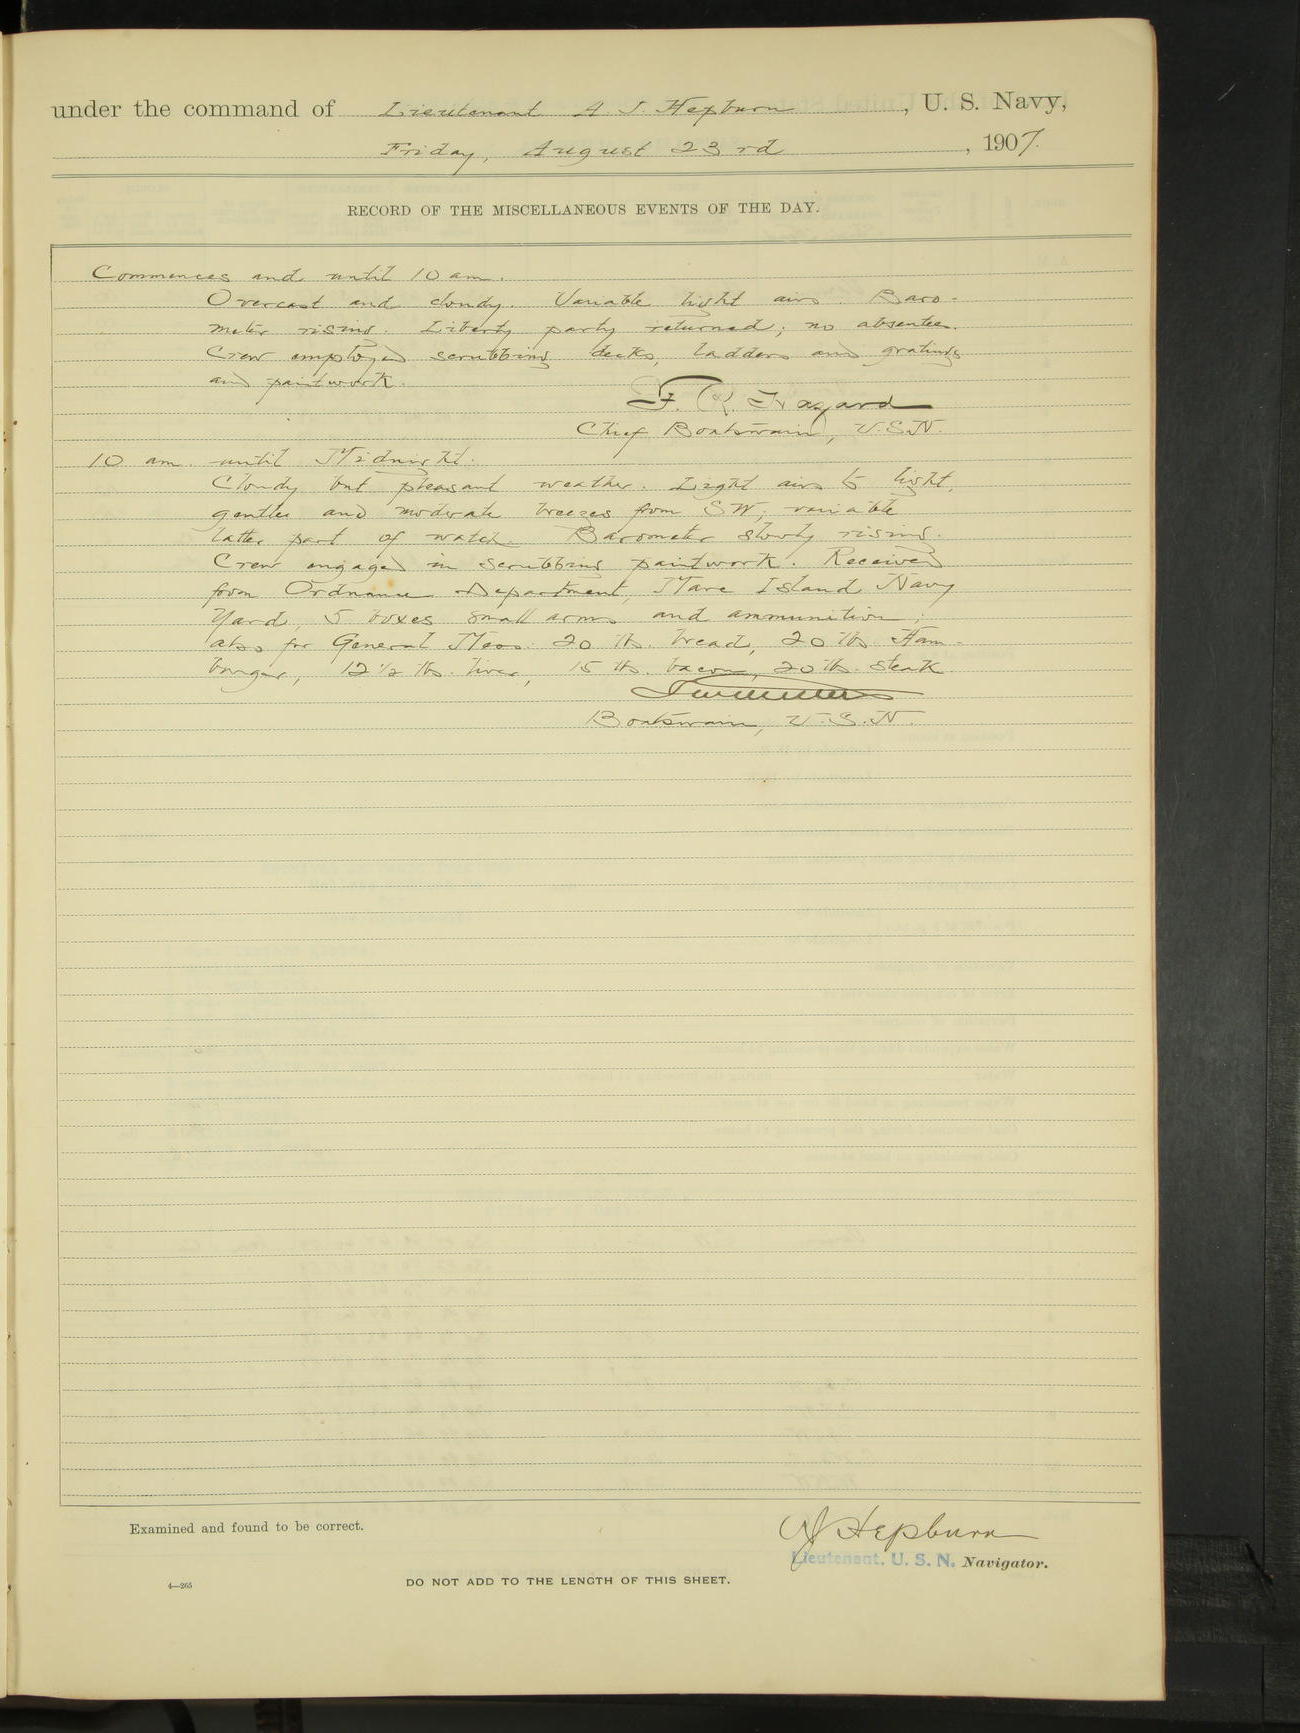 under the command of Lieutenant A. J. Hepburn, U. S. Navy,
Friday, August 23rd, 1907.
RECORD OF THE MISCELLANEOUS EVENTS OF THE DAY.
Commences and until 10 am.
Overcast and cloudy. Variable light airs. Baro-
meter rising. Liberty party returned; no absentees.
Crew employed scrubbing decks, ladders and gratings
and paintwork.
F. R. Hazard
Chief Boatswain, U.S.N.
10 am. until Midnight.
Cloudy but pleasant weather. Light airs to light,
gentle and moderate breezes from SW, variable
latter part of watch. Barometer slowly rising.
Crew engaged in scrubbing paintwork. Received
from Ordnance Department, Mare Island Navy
Yard, 5 boxes small arms and ammunition;
also for General Mess: 20 lb. bread, 20 lb. Ham-
burger, 12 1/2 lb. liver, 15 lb. bacon, 20 lb. steak
Boatswain, U.S.N.
Examined and found to be correct.
AJ Hepburn
Lieutenant, U. S. N. Navigator.
4—265
DO NOT ADD TO THE LENGTH OF THIS SHEET.